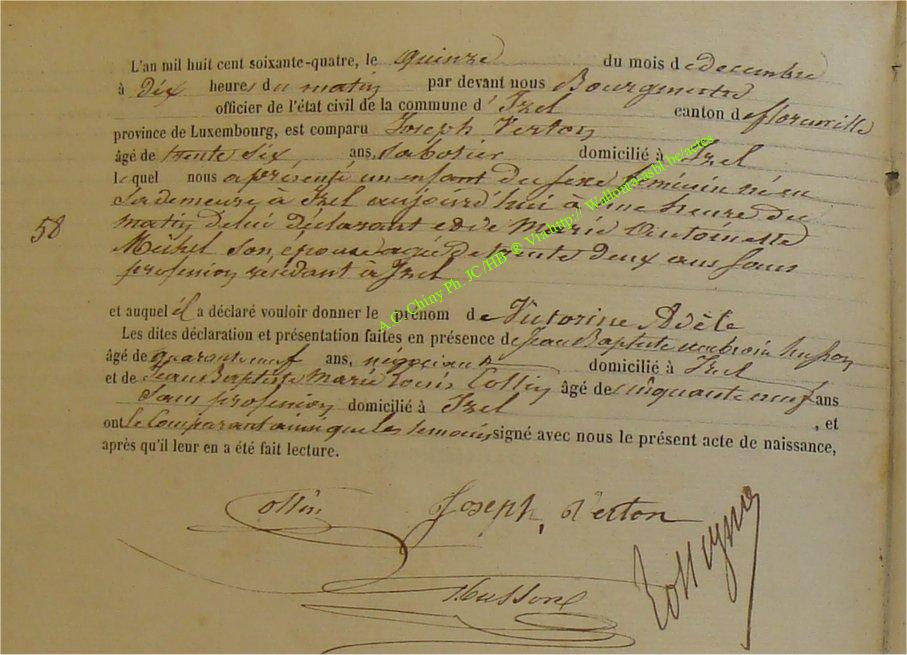 L'an mil huit cent soixante-quatre, le quinze du mois de Decembre
à Dix heures du matin par devant nous Bourgmestre
officier de l'état civil de la commune d'Izel canton de florenville
province de Luxembourg, est comparu Joseph Verton
âgé de trente six ans, sabotier domicilié à Izel
lequel nous a présenté un enfant du sexe féminin né en
Sa demeure à Izel aujourd'hui à une heure du
matin de lui Déclarant et de Marie Antoinette
Michel son epouse agée de trente deux ans Sans
profession residant à Izel
58
et auquel il a déclaré vouloir donner le prénom de Victorine Adèle
Les dites déclaration et présentation faites en présence de Jean Baptiste ambroise husson
âgé de quarante neuf ans, negociant domicilié à Izel
et de Jean Baptiste Marie Louis Collin âgé de cinquante neuf ans
Sans profession domicilié à Izel , et
ont le Comparant ainsi que les temoins signé avec nous le présent acte de naissance,
après qu'il leur en a été fait lecture.
A.G. Chiny Ph. JC/HB ® Via http:// Wallonia asbl be/actes
Collin Joseph Verton
Husson